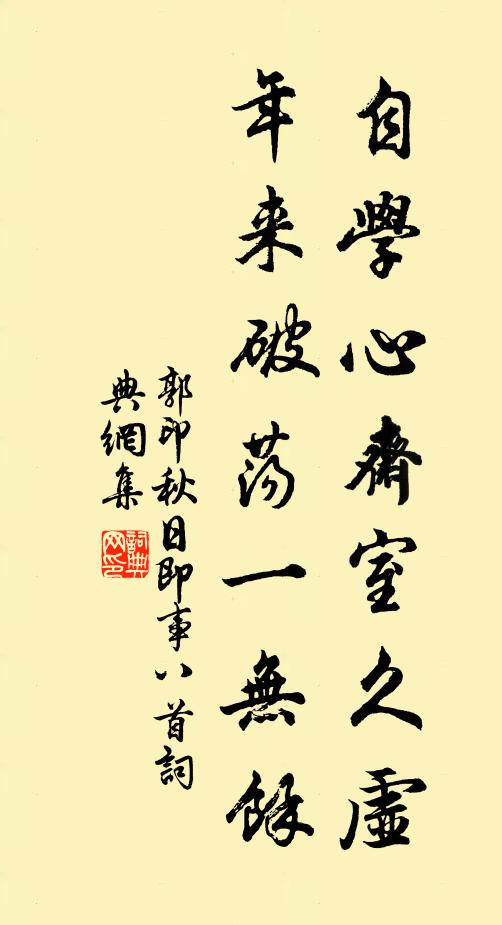 自學心齋室久虛
年来破蕩一無餘
郭印秋日即事八首詞
典網集
詞典网印